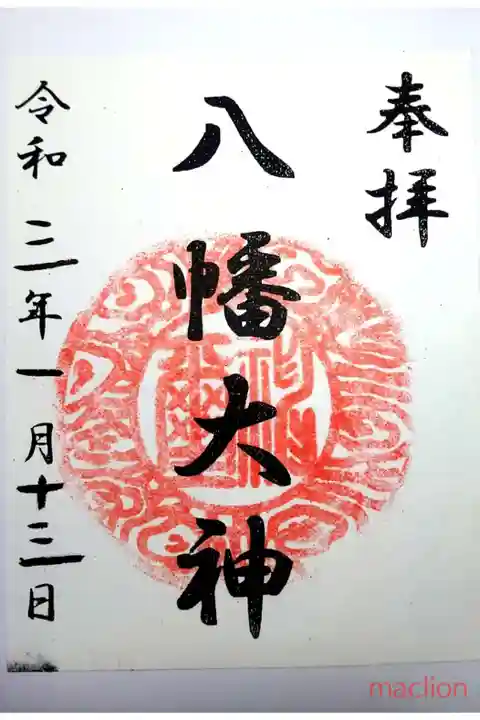 奉拝
八幡大神
令和三年一月十三日
maclion